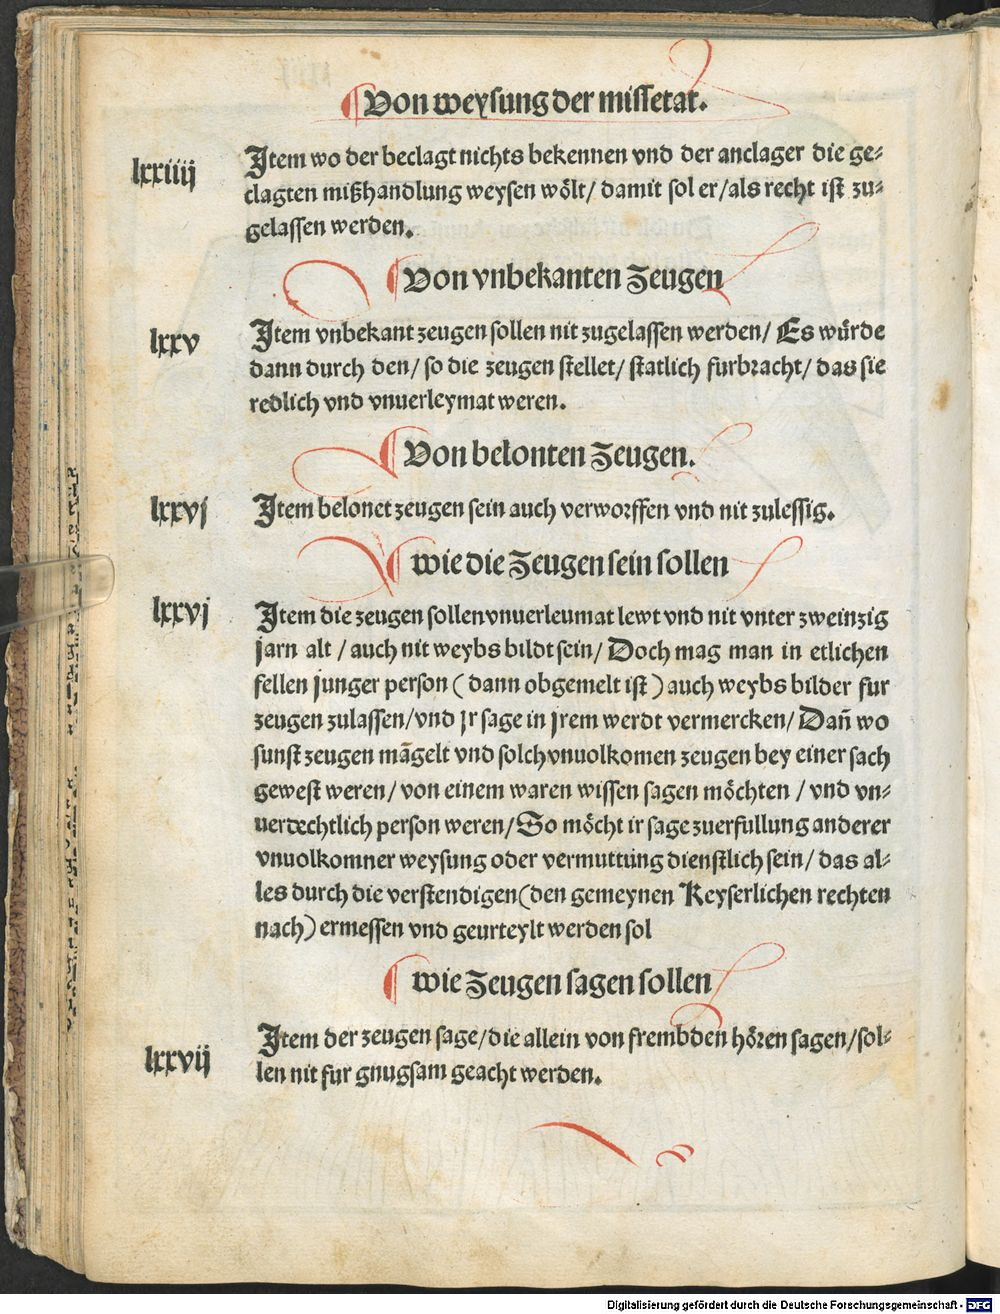 Von weysung der missetat.
lxxiiij Item wo der beclagt nichts bekennen vnd der anclager die ge-
clagten mißhandlung weysen wölt/ damit sol er/als recht ist zu-
gelassen werden.
Von vnbekanten Zeugen
lxxv Item vnbekant zeugen sollen nit zugelassen werden/ Es würde
dann durch den/ so die zeugen stellet/ statlich furbracht/ das sie
redlich vnd vnuerleymat weren.
Von belonten Zeugen.
lxxvj Item belonet zeugen sein auch verworffen vnd nit zulessig.
wie die Zeugen sein sollen
lxxvj Item die zeugen sollen vnuerleumat lewt vnd nit vnter zweinzig
jarn alt / auch nit weybs bildt sein/ Doch mag man in etlichen
fellen junger person ( dann obgemelt ist ) auch weybs bilder fur
zeugen zulassen/vnd jr sage in jrem werdt vermercken/ Dañ wo
sunst zeugen mãgelt vnd solch vnuolkomen zeugen bey einer sach
gewest weren/ von einem waren wissen sagen möchten / vnd vn-
uerdechtlich person weren/ So möcht ir sage zuerfullung anderer
vnuolkomner weysung oder vermuttung dienstlich sein/ das al-
les durch die verstendigen (den gemeynen Keyserlichen rechten
nach) ermessen vnd geurteylt werden sol
wie Zeugen sagen sollen
lxxvij Item der zeugen sage/die allein von frembden hören sagen/sol-
len nit fur gnugsam geacht werden.
Digitalisierung gefördert durch die Deutsche Forschungsgemeinschaft - DFG